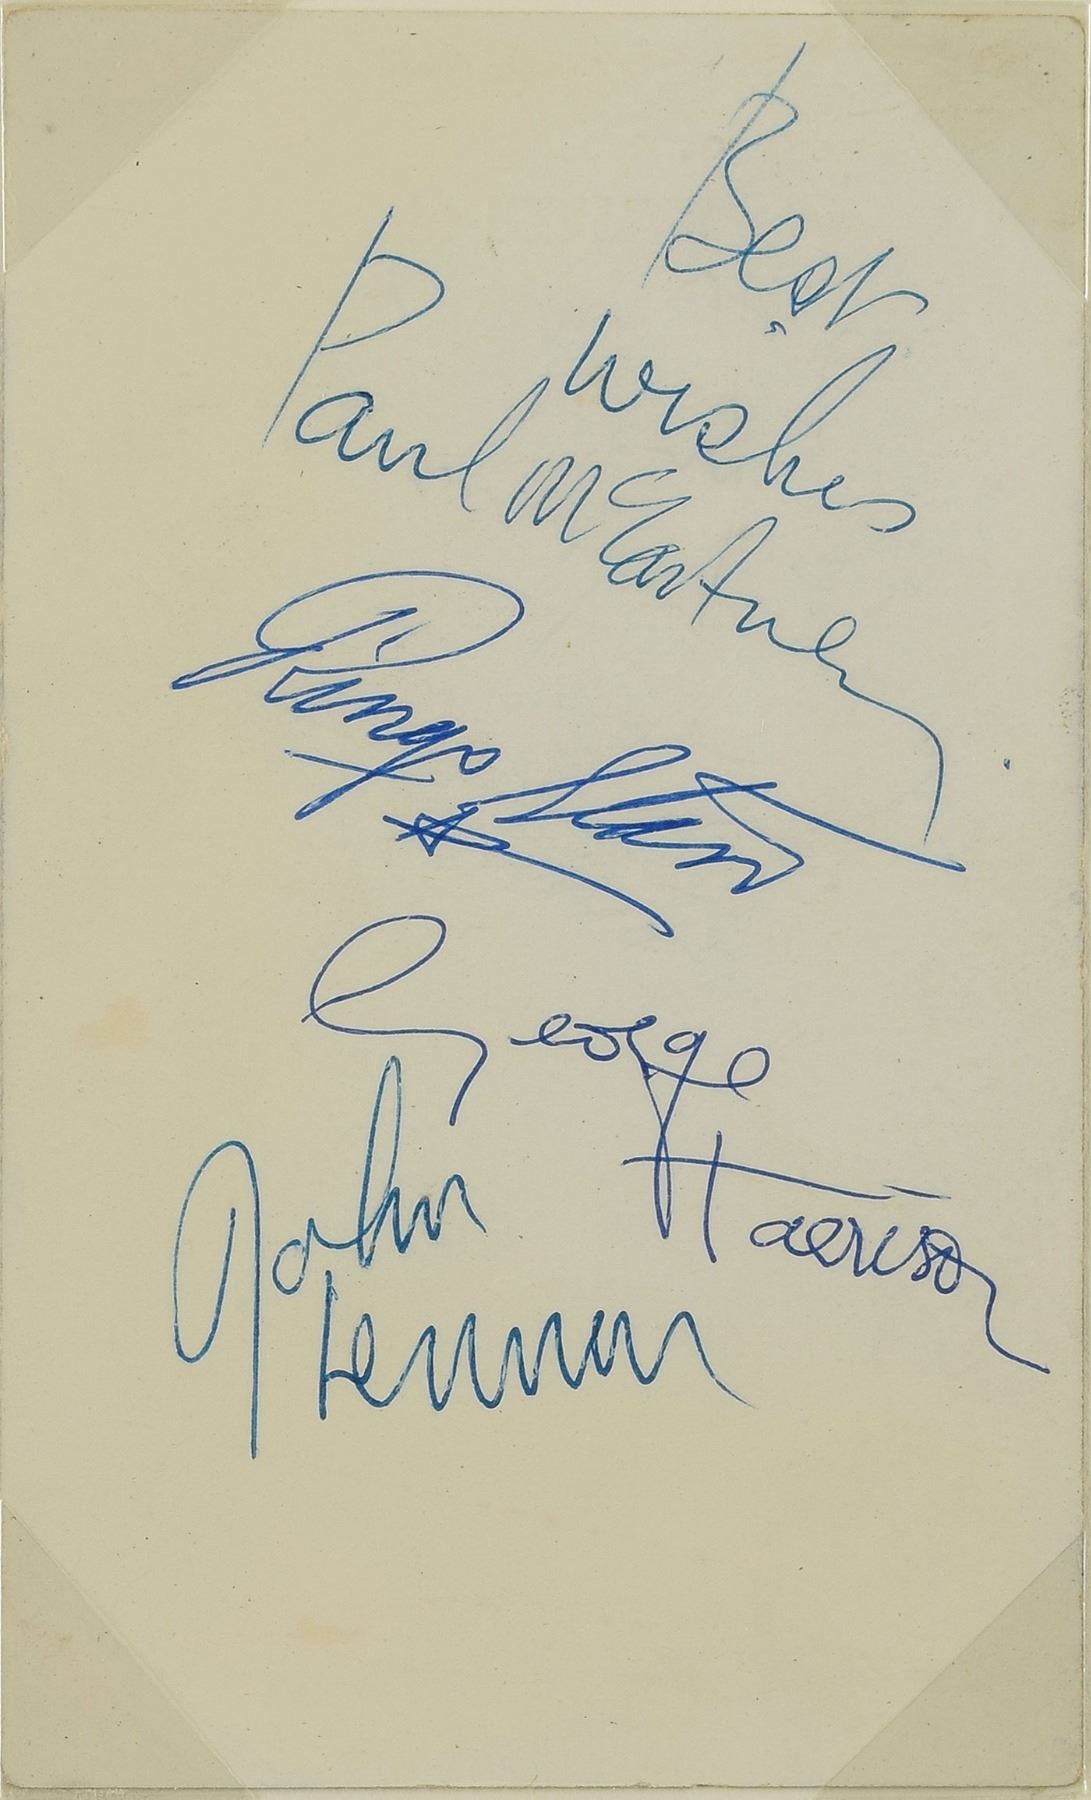 Best
wishes
Paul McCartney
Ringo Starr
George
Harrison
John
Lennon